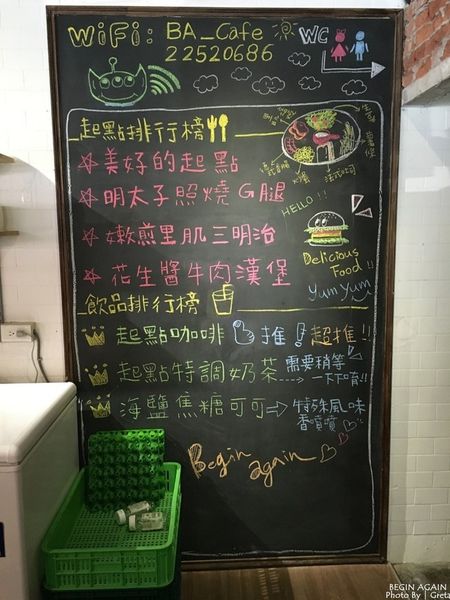 WiFi: BA_Cafe
22520686
WC
起點排行榜
美好的起點
明太子照燒G腿
嫩煎里肌三明治
花生醬牛肉漢堡
HELLO!!
Delicious
Food!!
yum yum
飲品排行榜
起點咖啡 推! 超推!!
起點特調奶茶 需要稍等
一下下唷!!
海鹽焦糖可可 特殊風味
香噴噴
Begin
again
BEGIN AGAIN
Photo By | Greta